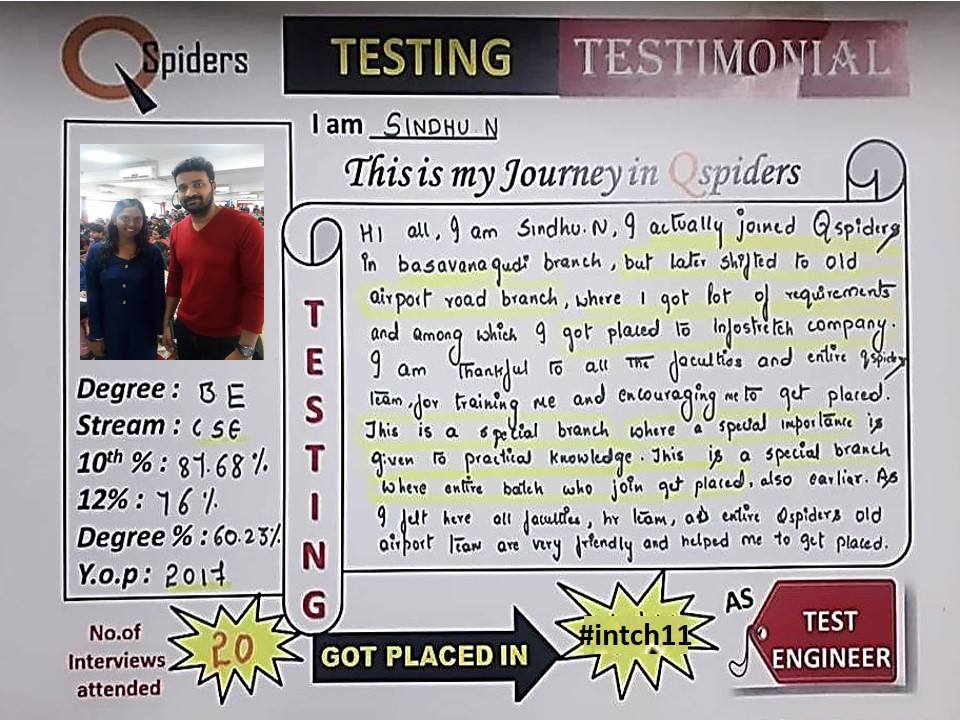 QSpiders
TESTING TESTIMONIAL
I am SINDHU N
This is my Journey in Qspiders
Hi all, I am Sindhu.N, I actually joined Qspiders
in basavanagudi branch, but later shifted to old
airport road branch, where I got lot of requirements
and among which I got placed to Infostretch company.
I am thankful to all the faculties and entire Qspiders
team, for training me and encouraging me to get placed.
This is a special branch where a special importance is
given to practical knowledge. This is a special branch
where entire batch who join get placed, also earlier. As
I felt here all faculties, hr team, ad entire Qspiders old
airport team are very friendly and helped me to get placed.
TESTING
Degree : BE
Stream : CSE
10th % : 87.68 %
12% : 76 %
Degree % : 60.23%
Y.o.p : 2017
No.of
Interviews
attended
20
GOT PLACED IN
#intch11
AS
TEST
ENGINEER